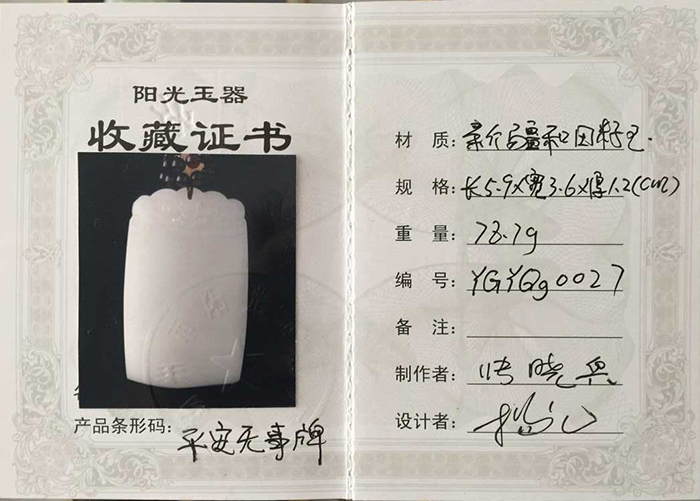 阳光玉器
收藏证书
产品条形码: 平安无事牌
材 质: 新疆和田籽玉.
规 格: 长5.9x宽3.6x厚1.2(cm)
重 量: 78.7g
编 号: YGYQg0027
备 注:
制作者: 张晓兵
设计者: